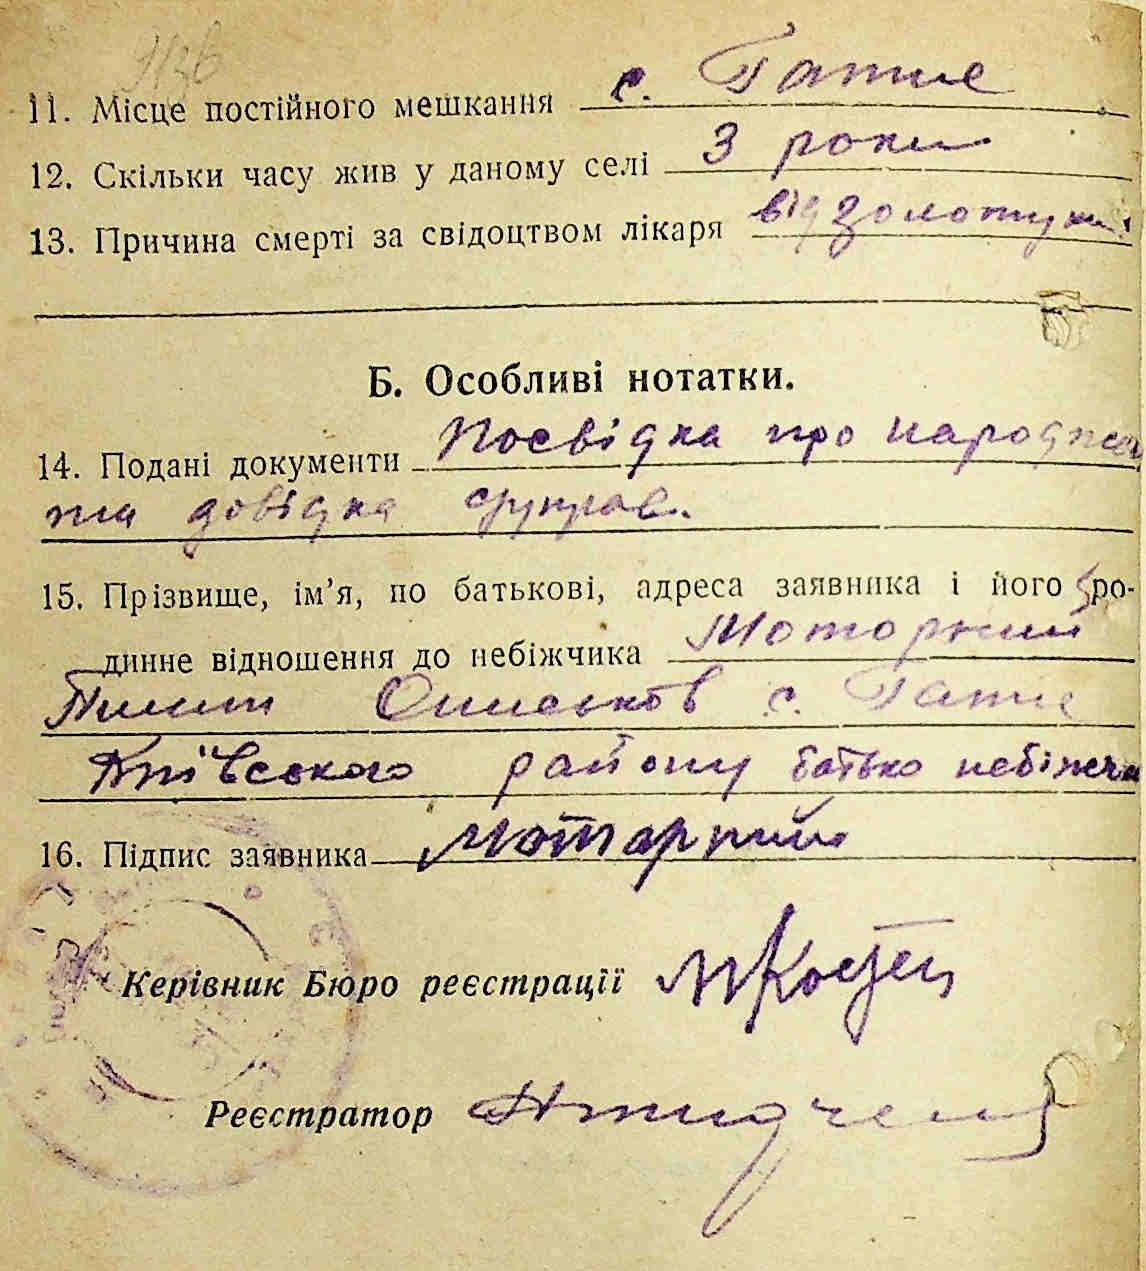 11. Місце постійного мешкання с. Гатне
12. Скільки часу жив у даному селі 3 роки
13. Причина смерті за свідоцтвом лікаря від золотухи
Б. Особливі нотатки.
14. Подані документи Посвідка про народжен
та довідка
15. Прізвище, ім’я, по батькові, адреса заявника і його ро-
динне відношення до небіжчика Моторний
Пилип с. Гатне
Київського району батько небіжчи
16. Підпис заявника Моторний
Керівник Бюро реєстрації
Реєстратор